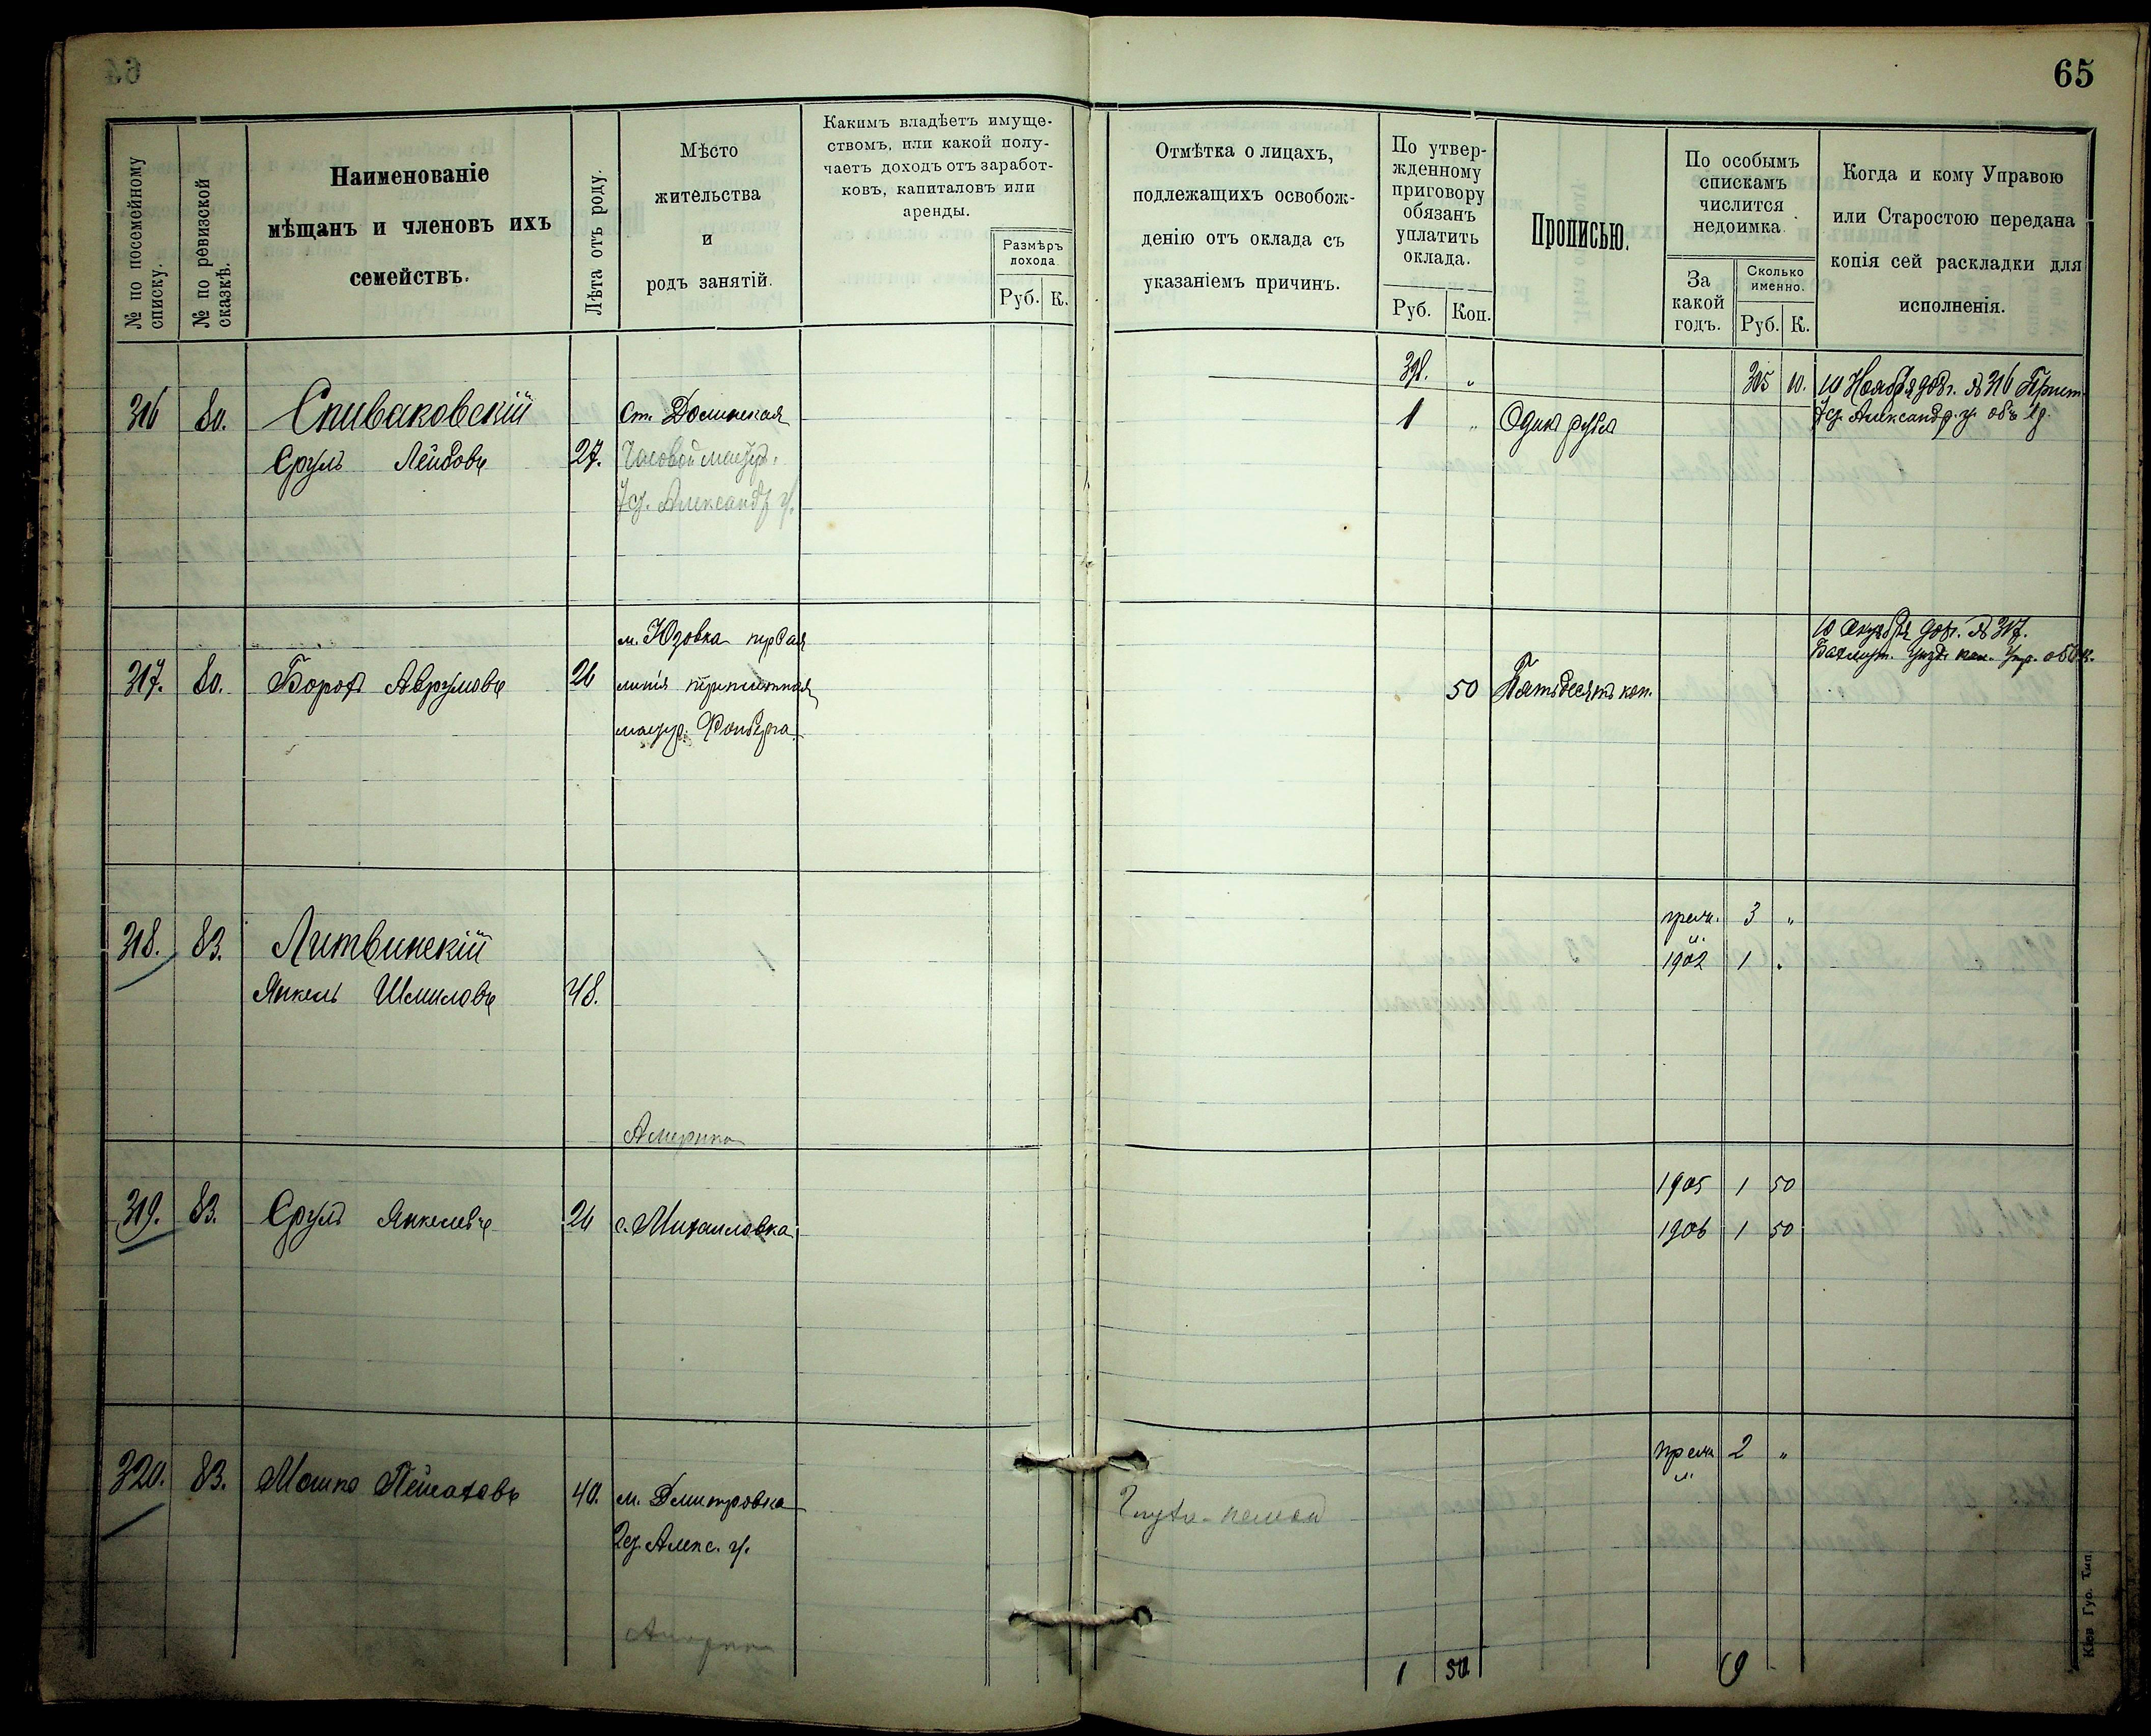 65
№ по посемейному списку.
№ по ревизской сказкѣ.
Наименованіе
мѣщанъ и членовъ ихъ
семействъ.
Лѣта отъ роду.
Мѣсто
жительства
и
родъ занятій.
Какимъ владѣетъ имуще-
ствомъ, или какой полу-
чаетъ доходъ отъ заработ-
ковъ, капиталовъ или
аренды.
Размѣръ
дохода.
Руб. К.
Отмѣтка о лицахъ,
подлежащихъ освобож-
денію отъ оклада съ
указаніемъ причинъ.
По утвер-
жденному
приговору
обязанъ
уплатить
оклада.
Руб. Коп.
Прописью.
По особымъ
спискамъ
числится
недоимка.
За
какой
годъ.
Сколько
именно.
Руб. К.
Когда и кому Управою
или Старостою передана
копія сей раскладки для
исполненія.
398. "
305 10.
316 80. Спиваковскій
Сруль Лейбовъ 27.
ст. Долинская
Часовой
Александр у.
1 " Одинъ рубль
10 Ноября 908г. № 316
Александр. у.
317. 80. Борохъ Аврумовъ 26
м. Юзовка первая
линія
50 Пятьдесятъ коп.
10 907. № 317.
Бахмут.
318. 83. Литвинскій
Янкель Шмиловъ 48.
3 "
1902 1 "
Америка
319. 83. Сруль Янкелевъ 26 с. Михайловка
1905 1 50
1906 1 50
320. 83. Мошко Пейсаховъ 40. м. Дмитровка
Алекс. у.
Америка
Глухо-немой
2 "
1 50
9
Кіев. Губ. Тип.